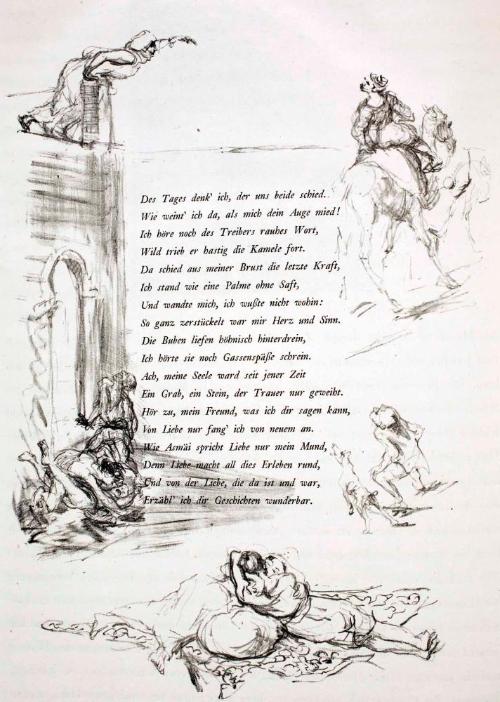 Des Tages denk' ich, der uns beide schied.
Wie weint' ich da, als mich dein Auge mied!
Ich höre noch des Treibers rauhes Wort,
Wild trieb er hastig die Kamele fort.
Da schied aus meiner Brust die letzte Kraft,
Ich stand wie eine Palme ohne Saft,
Und wandte mich, ich wußte nicht wohin:
So ganz zerstückelt war mir Herz und Sinn.
Die Buben liefen höhnisch hinterdrein,
Ich hörte sie noch Gassenspäße schrein.
Ach, meine Seele ward seit jener Zeit
Ein Grab, ein Stein, der Trauer nur geweiht.
Hör zu, mein Freund, was ich dir sagen kann,
Von Liebe nur fang' ich von neuem an.
Wie Asmâi spricht Liebe nur mein Mund,
Denn Liebe macht all dies Erleben rund,
Und von der Liebe, die da ist und war,
Erzähl' ich dir Geschichten wunderbar.